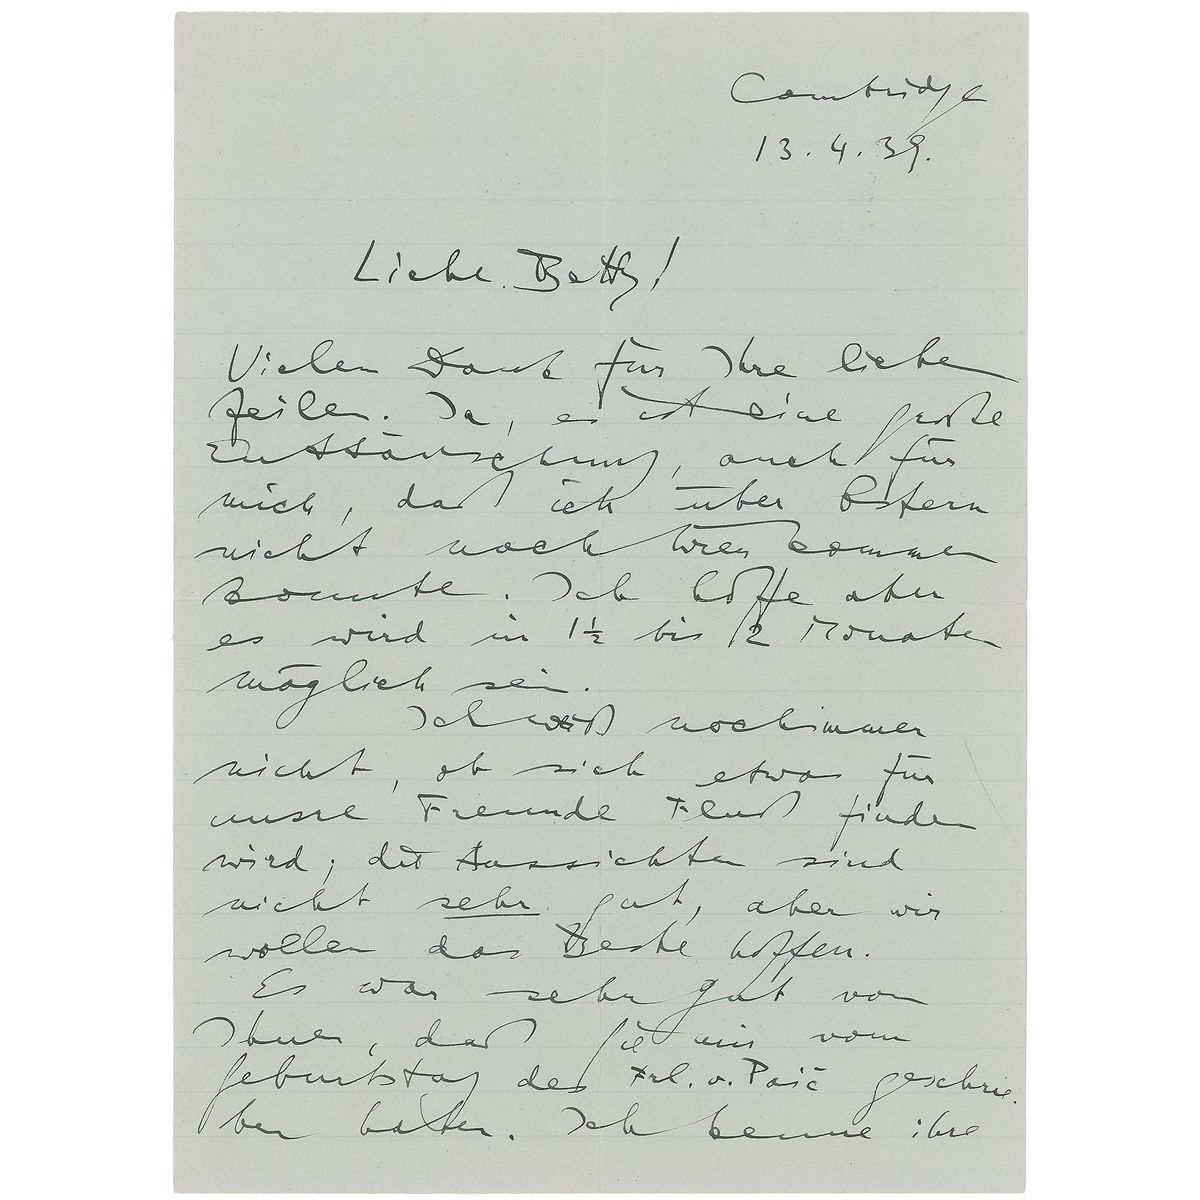 Cambridge
13.4.39.
Liebe Betty!
Vielen Dank für Ihre lieben
Zeilen. Ja, es ist eine große
Enttäuschung, auch für
mich, daß ich über Ostern
nicht nach Wien kommen
konnte. Ich hoffe aber
es wird in 1½ bis 2 Monaten
möglich sein.
Ich weiß noch immer
nicht, ob sich etwas für
unsre Freunde finden
wird; die Aussichten sind
nicht sehr gut, aber wir
wollen das Beste hoffen.
Es war sehr gut von
Ihnen, daß Sie mir vom
Geburtstag des Frl. v. geschrie-
ben haben. Ich kenne ihre